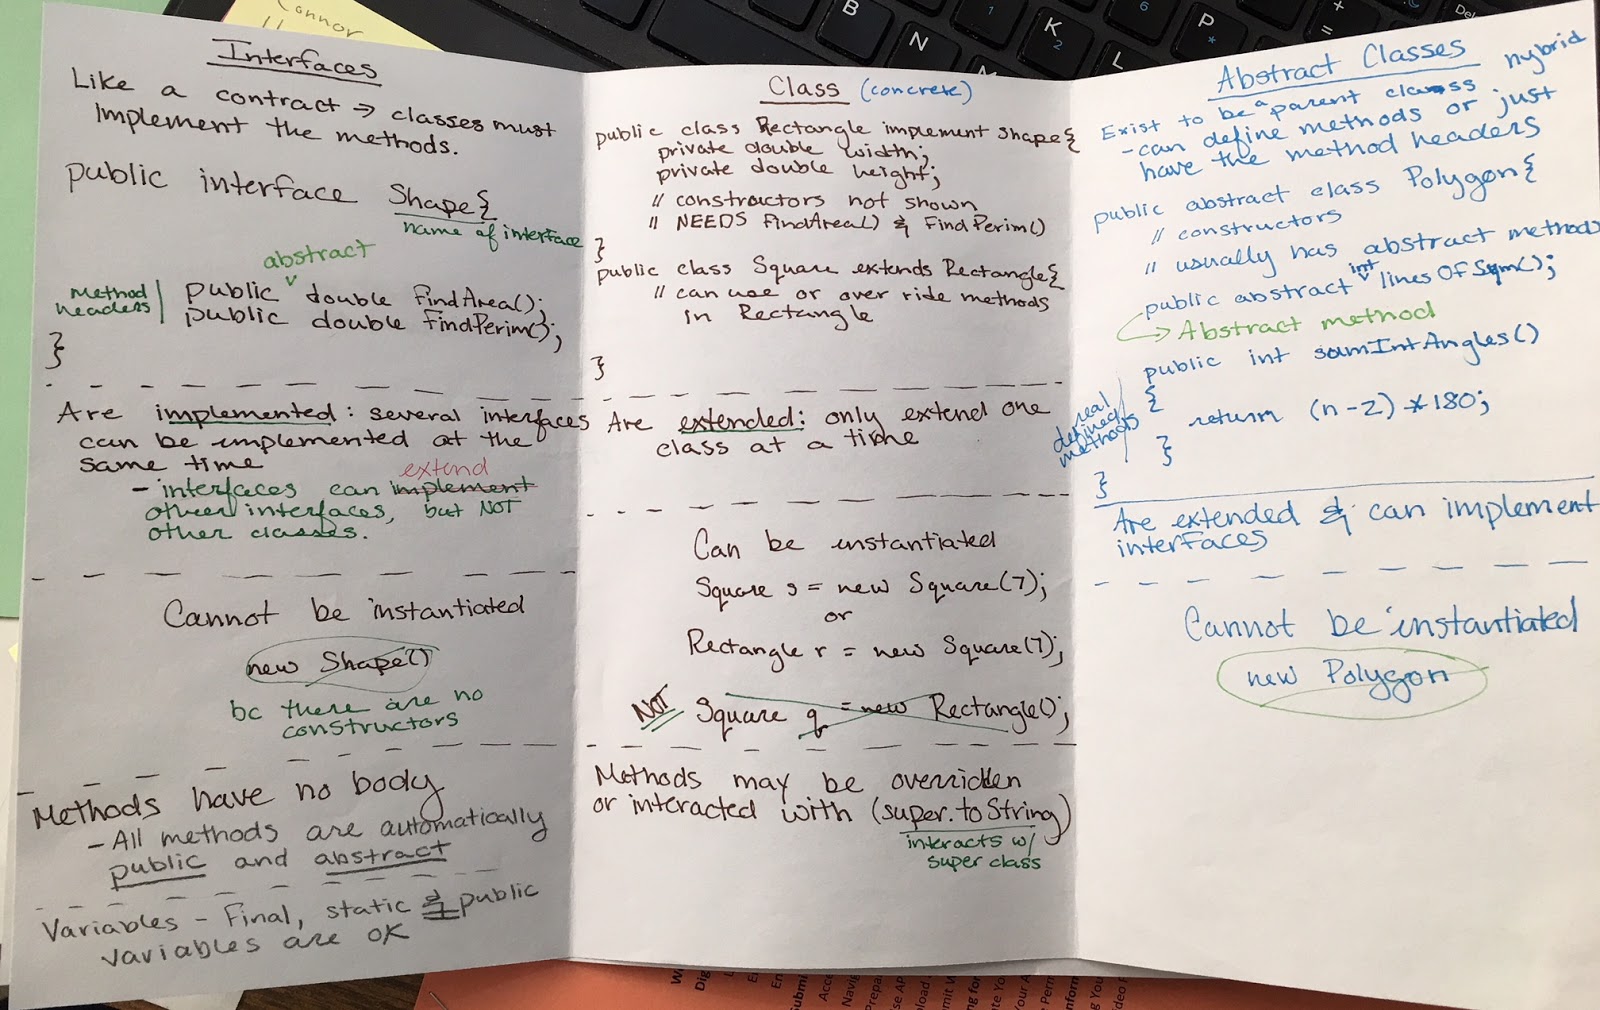 Connor
B
N
K
2
1
L
6
P
*
+
=
Interfaces
Like a contract → classes must
implement the methods.
public interface Shape{
name of interface
abstract
Method
headers
public double findArea();
public double findPerim();
}
Are implemented: several interfaces
can be implemented at the
same time
extend
- interfaces can implement
other interfaces, but NOT
other classes.
Cannot be instantiated
new Shape()
bc there are no
constructors
Methods have no body
- All methods are automatically
public and abstract
Variables - Final, static & public
variables are OK
Class (concrete)
public class Rectangle implement Shape{
private double width;
private double height;
// constructors not shown
// NEEDS findArea() & FindPerim()
}
public class Square extends Rectangle{
// can use or over ride methods
in Rectangle
}
Are extended: only extend one
class at a time
Can be instantiated
Square s = new Square(7);
or
Rectangle r = new Square(7);
NOT Square q = new Rectangle();
Methods may be overridden
or interacted with (super.toString)
interacts w/
super class
Abstract Classes
hybrid
Exist to be a parent class
- can define methods or just
have the method headers
public abstract class Polygon{
// constructors
// usually has abstract methods
int
public abstract linesOfSym();
→ Abstract method
public int sumIntAngles()
{
return (n-2)*180;
}
real
defined
methods
}
Are extended & can implement
interfaces
Cannot be instantiated
new Polygon